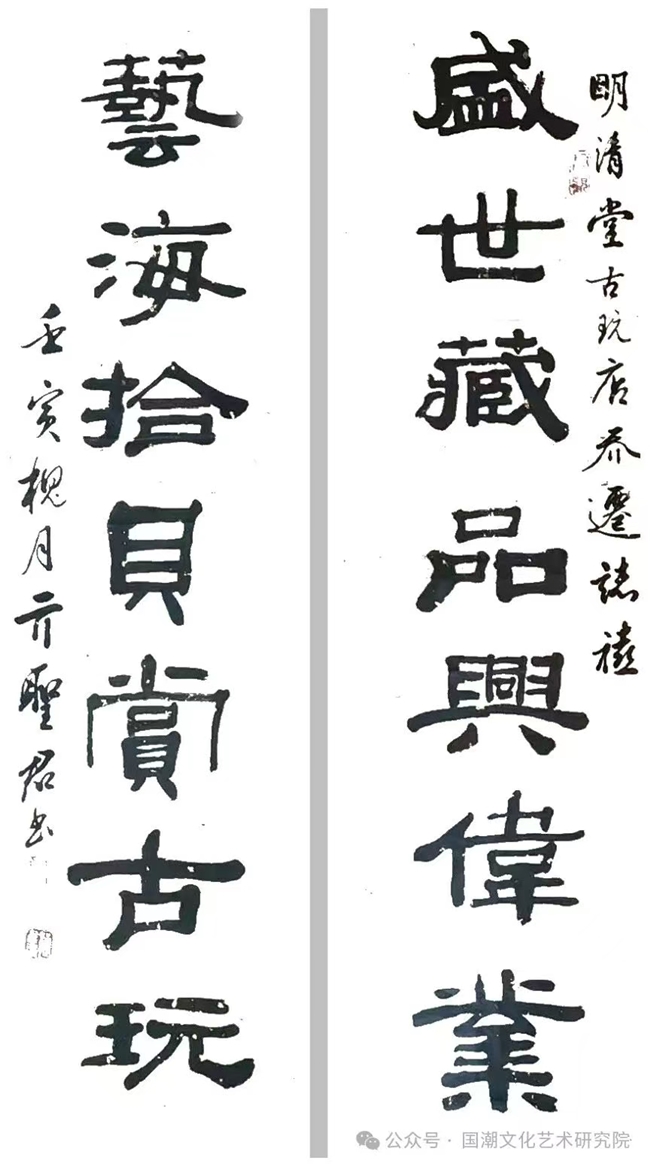 明清堂古玩店乔遷誌禧
盛世藏品興偉業
藝海拾貝賞古玩
壬寅槐月亓聖君书
公众号 · 国潮文化艺术研究院